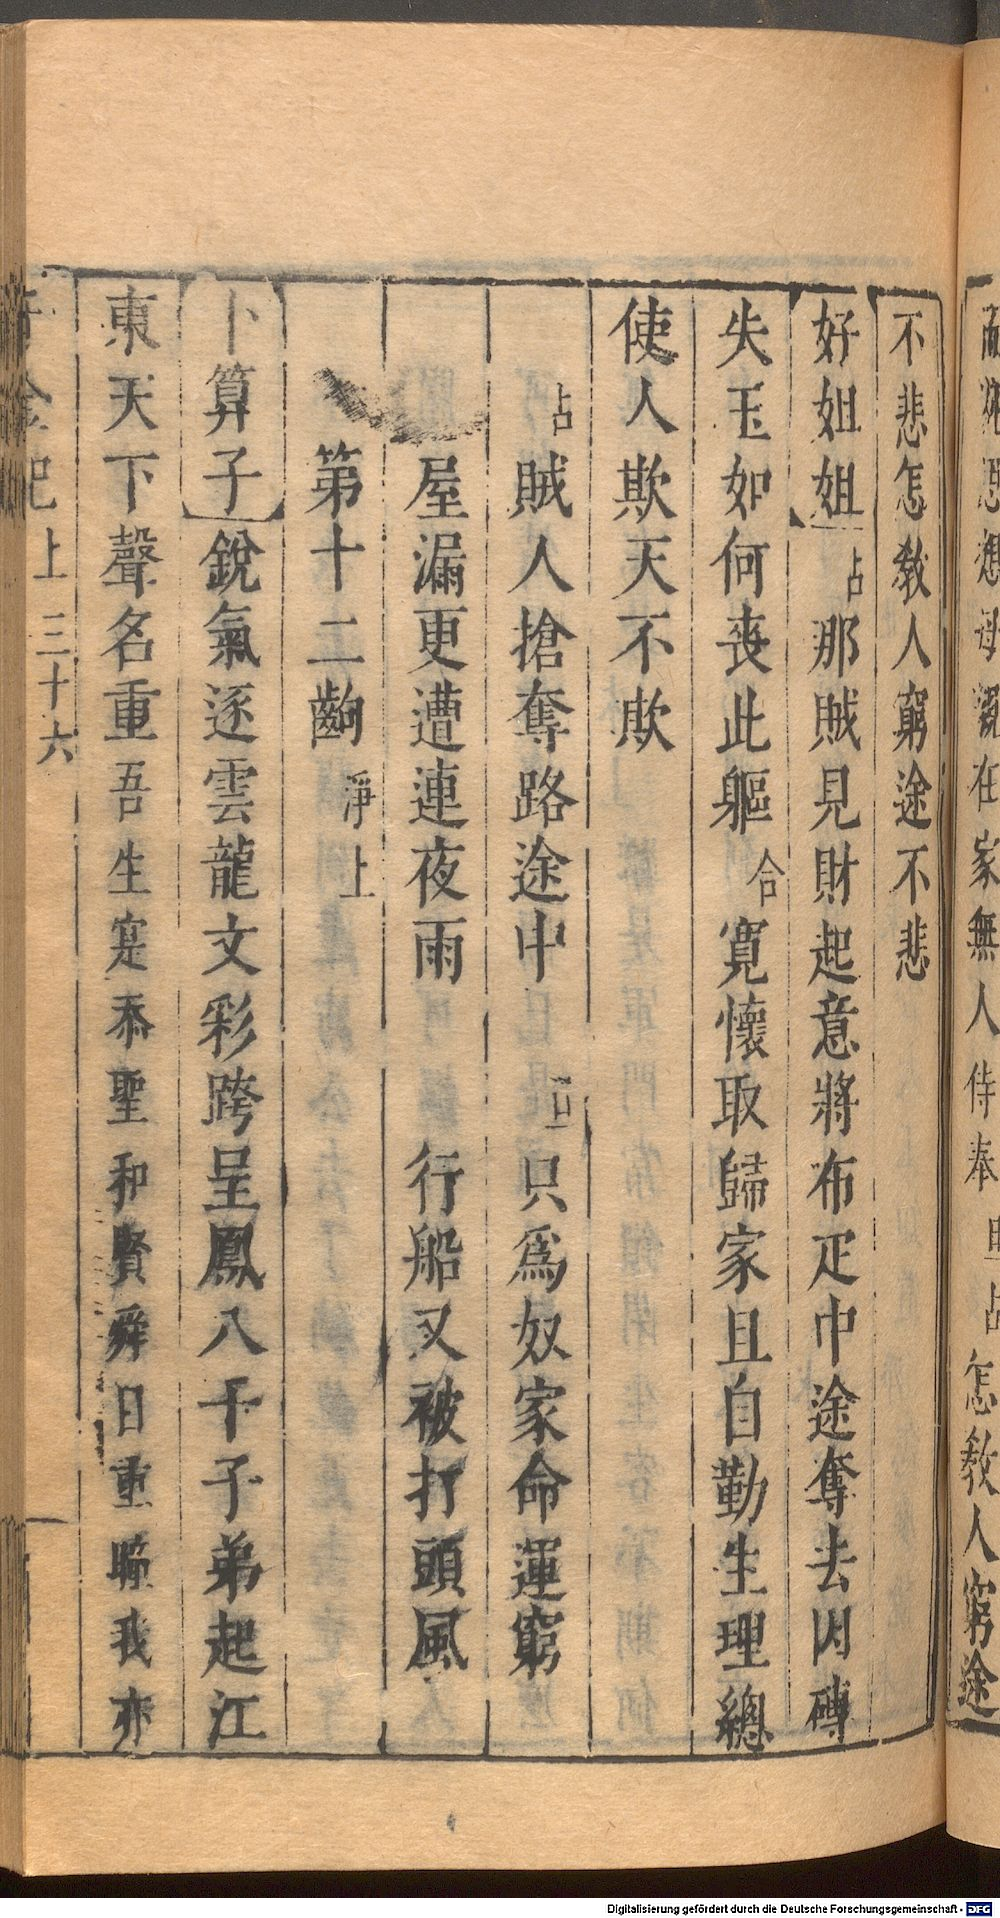 在家無人侍奉 占怎教人窮途
不悲怎教人窮途不悲
好姐姐 占那賊見財起意將布疋中途奪去因磚
失玉如何喪此軀 合寬懷取歸家且自勤生理總
使人欺天不欺
占賊人搶奪路途中 只為奴家命運窮
屋漏更遭連夜雨 行船又被打頭風
第十二齣 淨上
卜算子 銳氣逐雲龍文彩跨呈鳳八千子弟起江
東天下聲名重吾生寔忝聖和賢舜日重瞻我亦
金記上 三十六
Digitalisierung gefördert durch die Deutsche Forschungsgemeinschaft - DFG